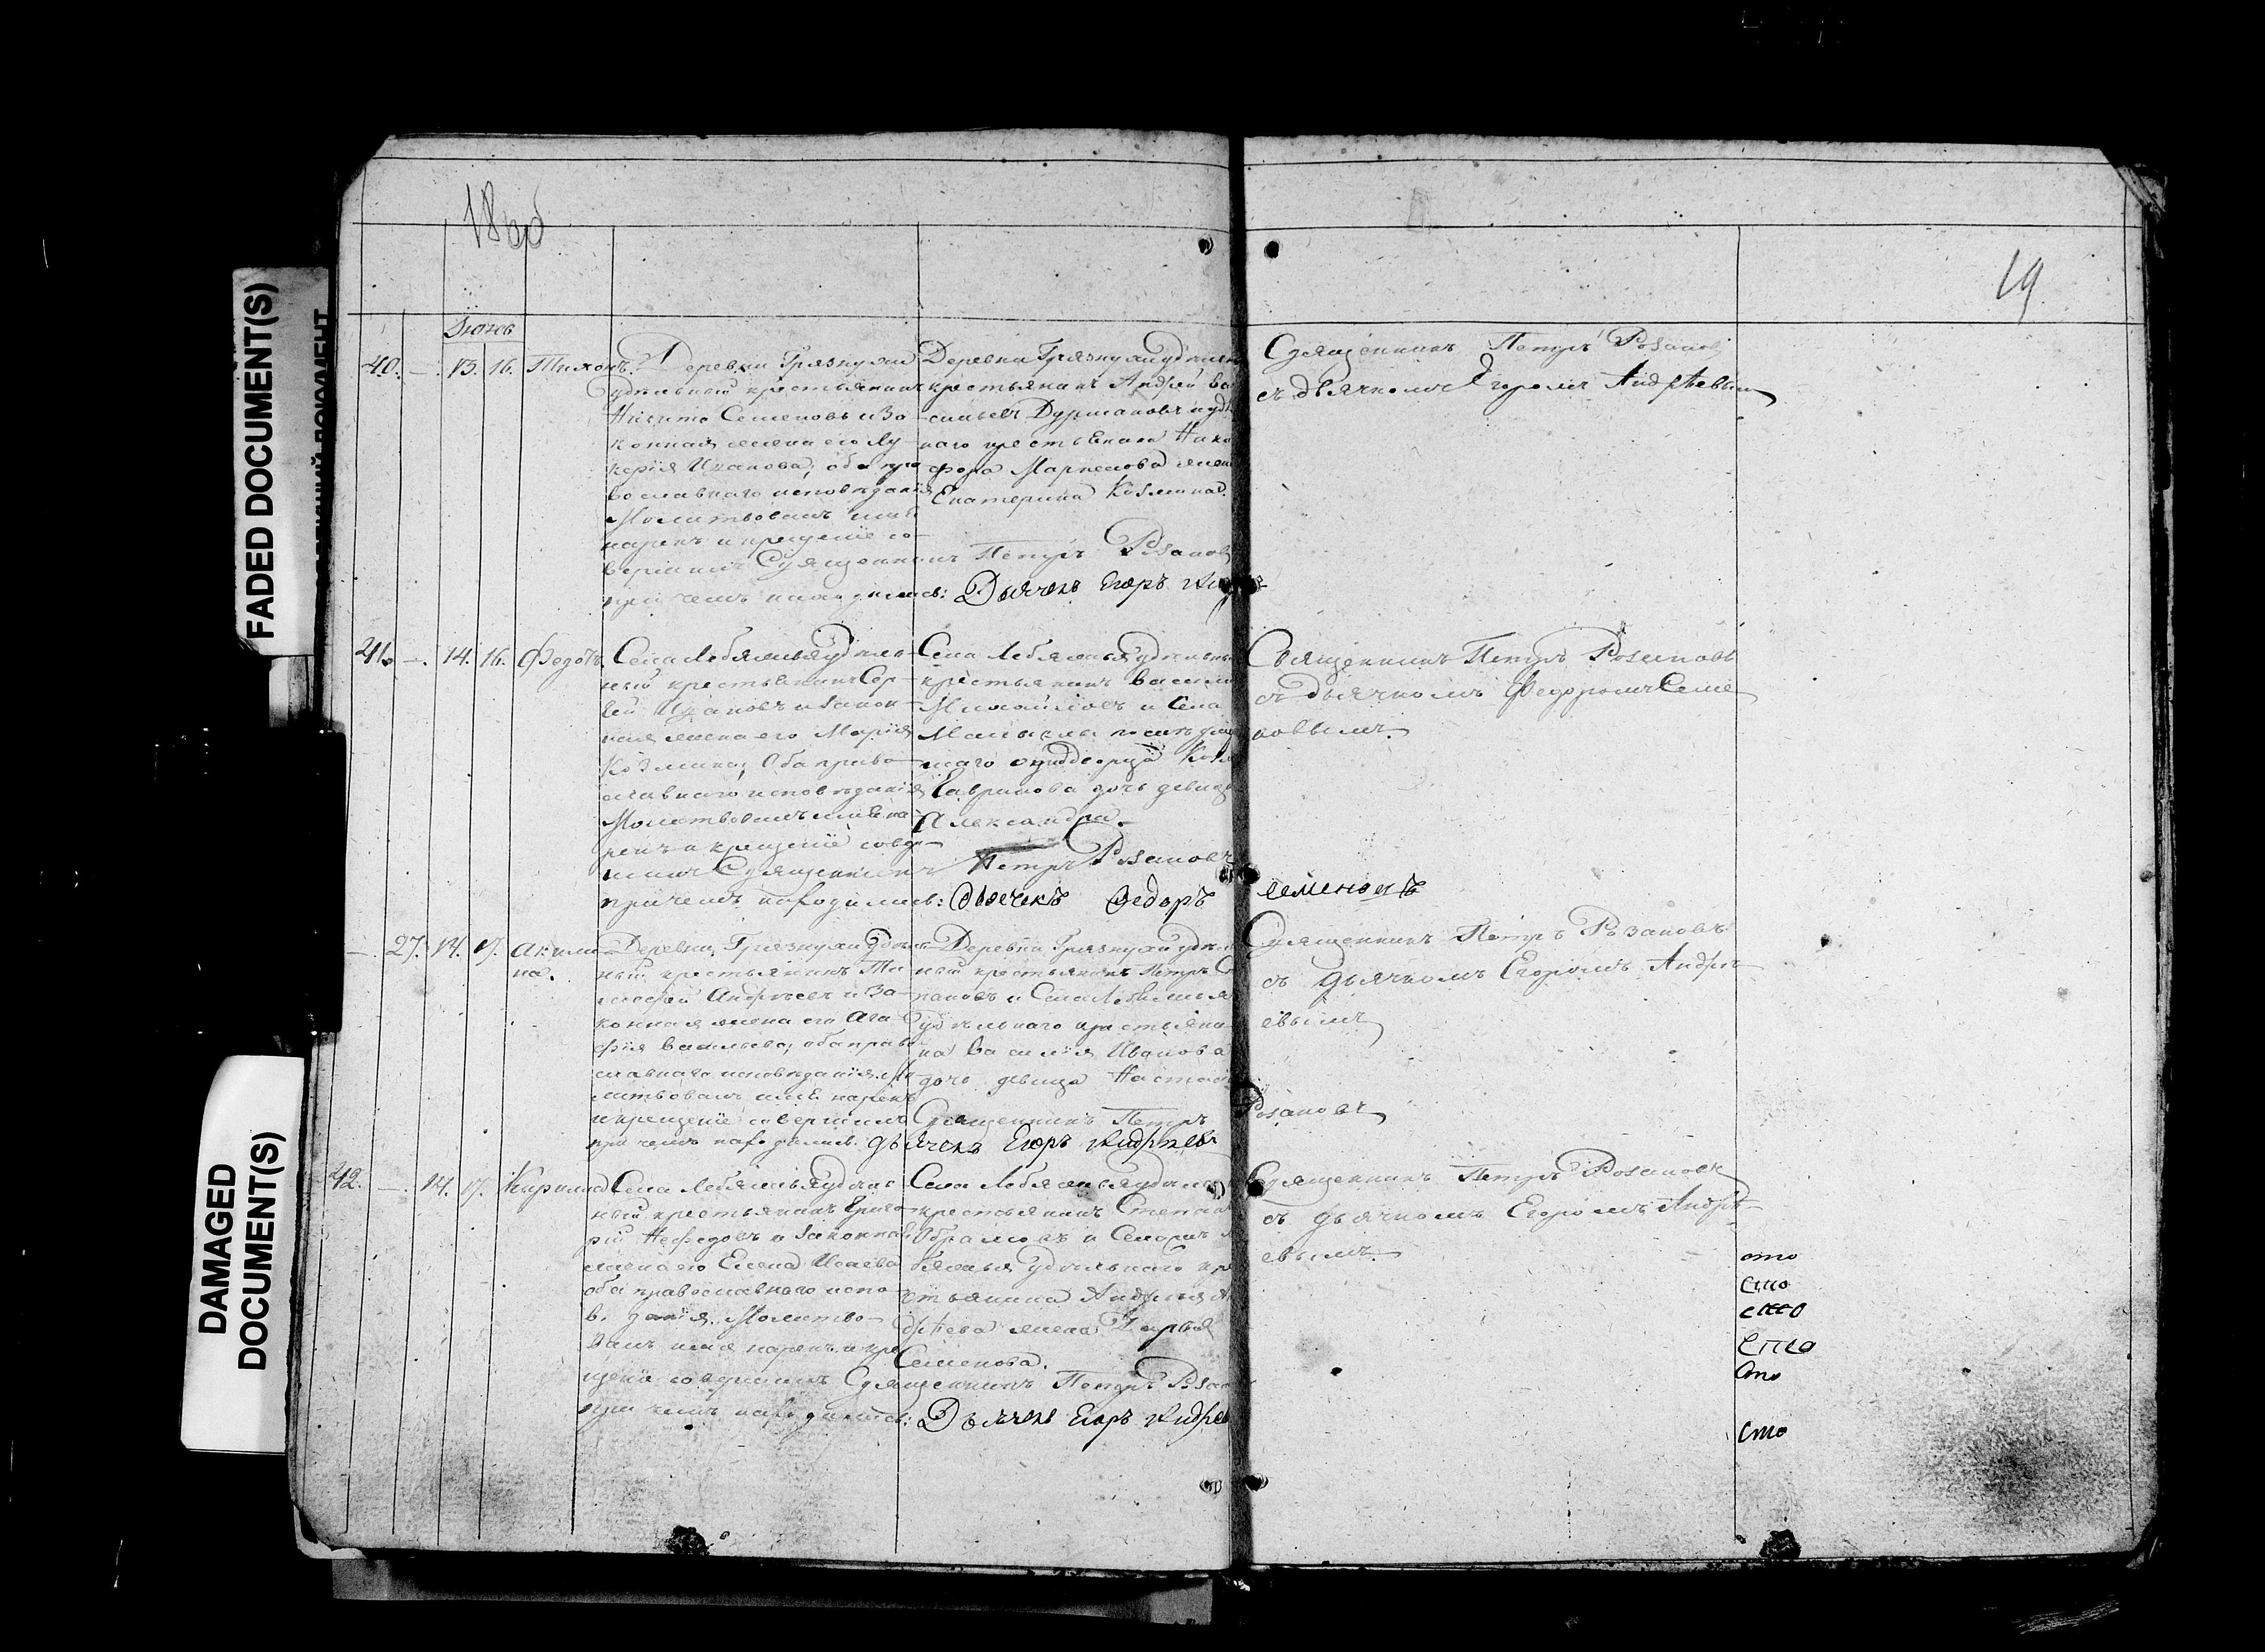 FADED DOCUMENT(S)
DAMAGED
DOCUMENT(S)
1860
19
Июнь
40. — 13. 16. Тихонъ.
Деревни Грязнухи
удельный крестьянинъ
Никита Семеновъ и за-
конная жена его Лу-
керія Иванова; оба пра-
вославнаго исповѣданія
Молитвовалъ имя
нарекъ и крещеніе со-
вершилъ Священникъ Петръ Розановъ
при чемъ находились: Дьячекъ Егоръ
Деревни Грязнухи
крестьянинъ Андрей Ва
сильевъ Дурмановъ и
наго крестьянина Ники
фора Маркелова жена
Екатерина Козмина.
Священникъ Петръ Розановъ
съ дьячкомъ Егоромъ Андрѣевымъ
41. — 14. 16. Федотъ.
Села Лебяжья удѣль-
ный крестьянинъ Сер-
гей Ивановъ и закон-
ная жена его Марія
Козмина; Оба право-
славнаго исповѣданія
Молитвовалъ имя на-
рекъ и крещеніе совер-
шилъ Священникъ Петръ Розановъ
при чемъ находились: Дьячекъ Федоръ Семеновъ
Села Лебяжья
крестьянинъ Васили
Михайловъ и Села
наго однодворца
Гаврилова дочь девица
Александра.
Священникъ Петръ Розановъ
съ дьячкомъ Федоромъ Семе
новымъ.
— 27. 14. 17. Акили-
на.
Деревни Грязнухи Удѣль-
ный крестьянинъ Ти-
мофей Андрѣевъ и за-
конная жена его Ага-
фія Васильева; оба право-
славнаго исповѣданія. Мо-
литвовалъ имя нарекъ
и крещеніе совершилъ Священникъ Петръ Розановъ
при чемъ находились: дьячекъ Егоръ Андрѣевъ
Деревни Грязнухи
ный крестьянинъ Петръ
пановъ и Села Лебяжья
Удѣльнаго крестьяни-
на Василія Иванова
дочь девица
Священникъ Петръ Розановъ
съ дьячкомъ Егоромъ Андрѣ-
евымъ
42. — 14. 17. Кирилла
Села Лебяжья Удѣль-
ный крестьянинъ Григо-
рій Нефедовъ и законная
жена его Елена Исаева
оба православнаго испо-
вѣданія. Молитво-
валъ имя нарекъ и кре-
щеніе совершилъ Священникъ Петръ
при чемъ находились: Дьячекъ Егоръ
Села Лебяжья
крестьянинъ Степанъ
Абрамовъ и Села
бяжья Удѣльнаго кре
стьянина Андрея Ан
дрѣева жена Дарья
Семенова.
Священникъ Петръ Розановъ
съ дьячкомъ Егоромъ Андрѣ-
евымъ.
сто
сто
сто
сто
сто